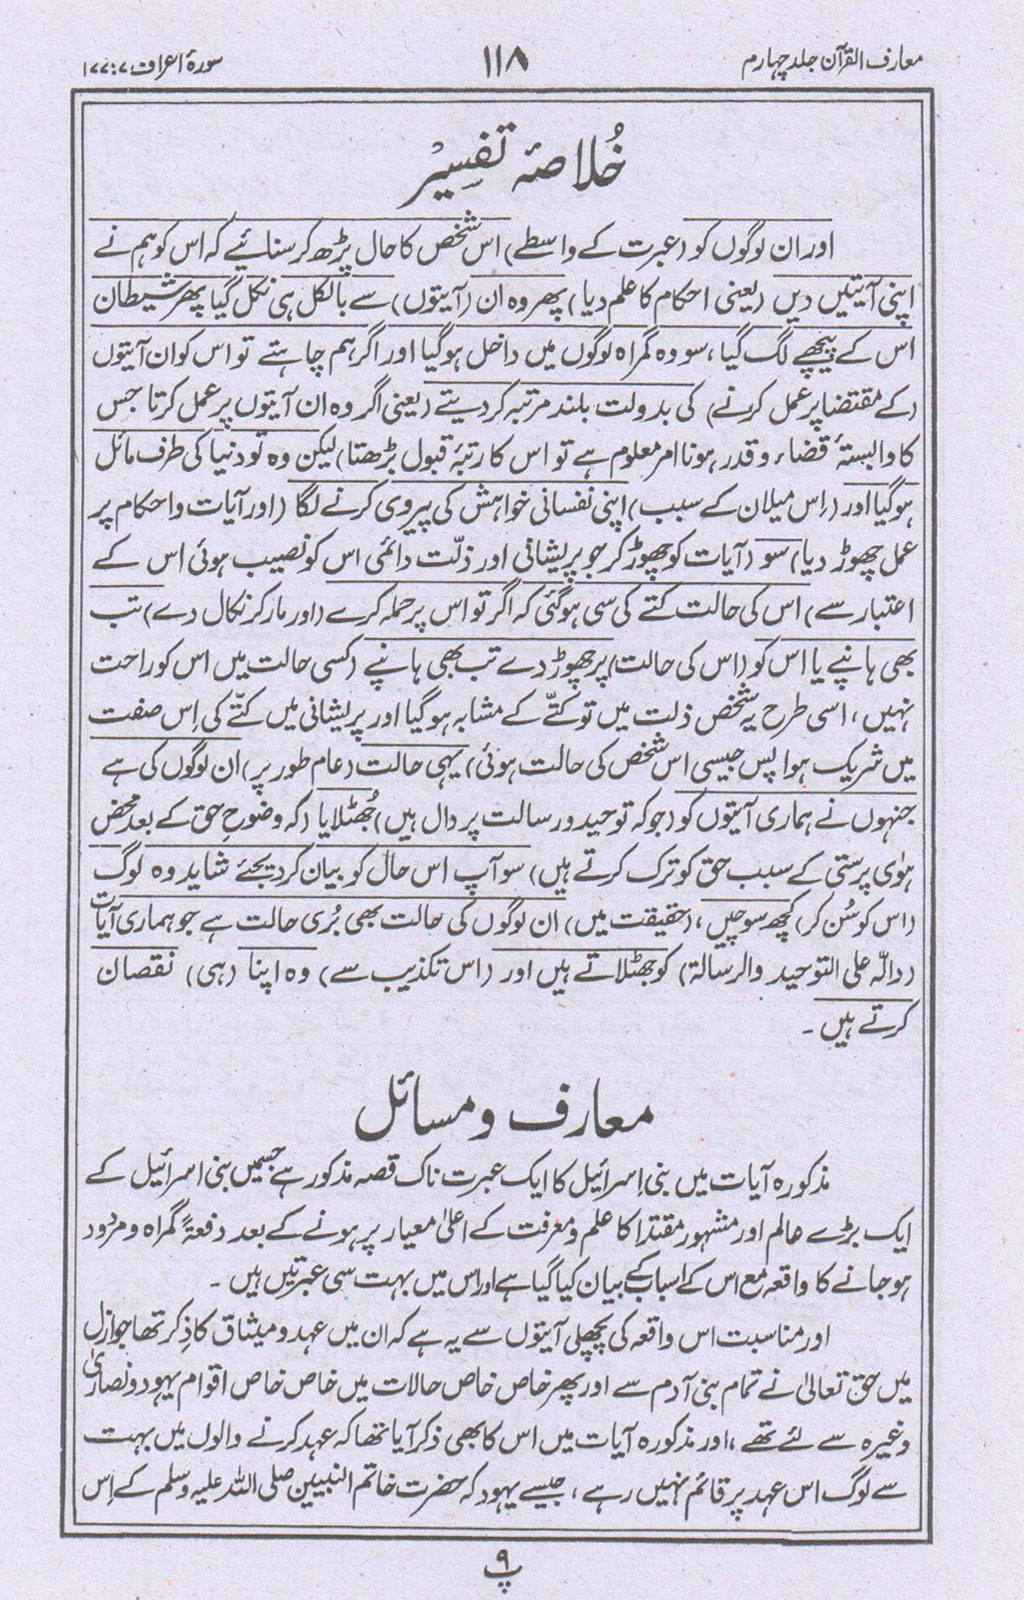 معارف القرآن جلد چہارم
۱۱۸
سورۂ اعراف ۷:۱۷۷
خُلاصۂ تفسیر
اور ان لوگوں کو (عبرت کے واسطے) اس شخص کا حال پڑھ کر سنائیے کہ اس کو ہم نے
اپنی آیتیں دیں (یعنی احکام کا علم دیا) پھر وہ ان (آیتوں) سے بالکل ہی نکل گیا پھر شیطان
اس کے پیچھے لگ گیا، سو وہ گمراہ لوگوں میں داخل ہوگیا اور اگر ہم چاہتے تو اس کو ان آیتوں
(کے مقتضا پر عمل کرنے) کی بدولت بلند مرتبہ کر دیتے (یعنی اگر وہ ان آیتوں پر عمل کرتا جس
کا وابستۂ قضاء و قدر ہونا امر معلوم ہے تو اس کا رتبۂ قبول بڑھتا) لیکن وہ تو دنیا کی طرف مائل
ہوگیا اور (اِس میلان کے سبب) اپنی نفسانی خواہش کی پیروی کرنے لگا (اور آیات و احکام پر
عمل چھوڑ دیا) سو (آیات کو چھوڑ کر جو پریشانی اور ذلّت دائمی اس کو نصیب ہوئی اس کے
اعتبار سے) اس کی حالت کتے کی سی ہوگئی کہ اگر تو اس پر حملہ کرے (اور مار کر نکال دے) تب
بھی ہانپے یا اس کو (اس کی حالت) پر چھوڑ دے تب بھی ہانپے (کسی حالت میں اس کو راحت
نہیں، اسی طرح یہ شخص ذلت میں تو کتّے کے مشابہ ہوگیا اور پریشانی میں کتّے کی اِس صفت
میں شریک ہوا پس جیسی اس شخص کی حالت ہوئی) یہی حالت (عام طور پر) ان لوگوں کی ہے
جنہوں نے ہماری آیتوں کو (جو کہ توحید و رسالت پر دال ہیں) جُھٹلایا (کہ وضوحِ حق کے بعد محض
ہوٰی پرستی کے سبب حق کو ترک کرتے ہیں) سو آپ اس حال کو بیان کر دیجئے شاید وہ لوگ
(اس کو سُن کر) کچھ سوچیں، (حقیقت میں) ان لوگوں کی حالت بھی بُری حالت ہے جو ہماری آیات
(دالّہ علی التوحید والرسالة) کو جھٹلاتے ہیں اور (اس تکذیب سے) وہ اپنا (ہی) نقصان
کرتے ہیں۔
معارف و مسائل
مذکورہ آیات میں بنی اِسرائیل کا ایک عبرت ناک قصہ مذکور ہے جسمیں بنی اسرائیل کے
ایک بڑے عالم اور مشہور مقتدا کا علم و معرفت کے اعلیٰ معیار پر ہونے کے بعد دفعۃً گمراہ و مردود
ہو جانے کا واقعہ مع اس کے اسباب کے بیان کیا گیا ہے اور اس میں بہت سی عبرتیں ہیں۔
اور مناسبت اس واقعہ کی پچھلی آیتوں سے یہ ہے کہ ان میں عہد و میثاق کا ذِکر تھا جو ازل
میں حق تعالیٰ نے تمام بنی آدم سے اور پھر خاص خاص حالات میں خاص خاص اقوام یہود و نصاریٰ
وغیرہ سے لئے تھے، اور مذکورہ آیات میں اس کا بھی ذکر آیا تھا کہ عہد کرنے والوں میں بہت
سے لوگ اس عہد پر قائم نہیں رہے، جیسے یہود کہ حضرت خاتم النبیین صلی اللہ علیہ وسلم کے اِس
پ۹